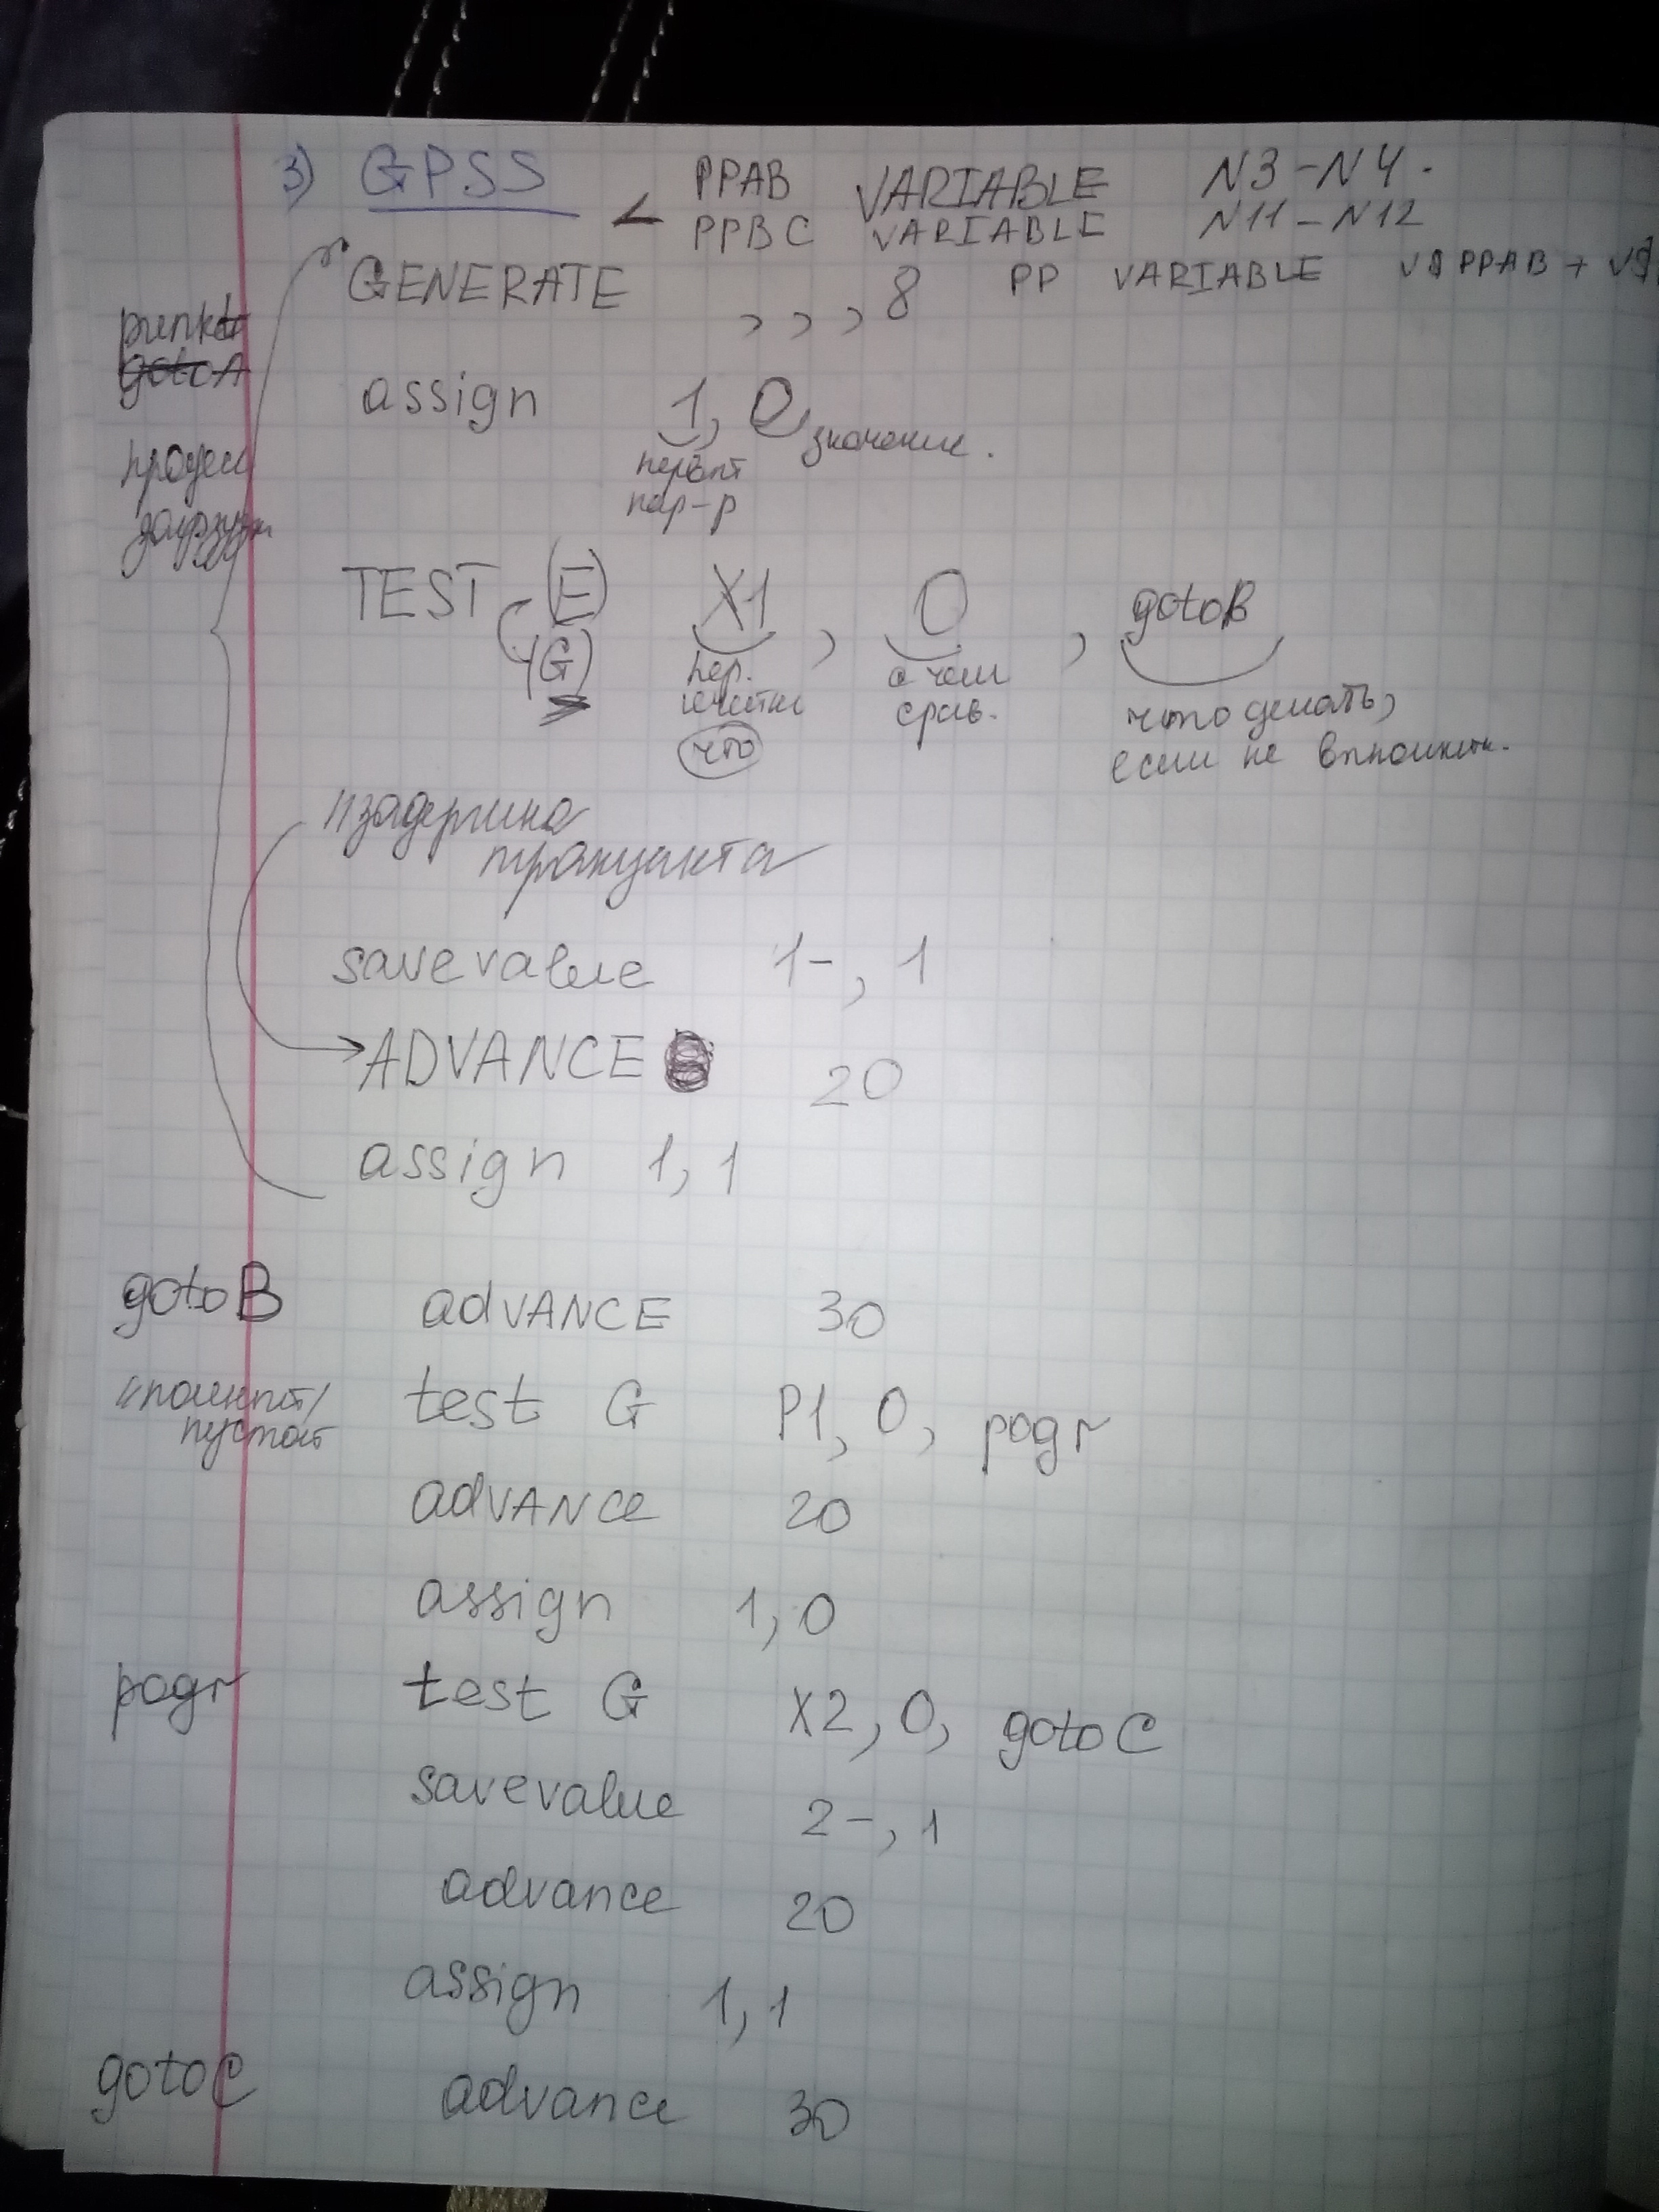 3) GPSS
PPAB VARIABLE N3-N4.
PPBC VARIABLE N11-N12
GENERATE , , , 8 PP VARIABLE V$PPAB + V$
punkt
gotoA
assign 1, 0, значение.
первый
пар-р
процесс
загрузки
TEST (E) X1 , 0 , gotoB
(G)
пер. с чем что делать,
ячейки срав. если не выполнен.
что
//задержка
транзакта
savevalue 1-, 1
ADVANCE 20
assign 1, 1
gotoB advANCE 30
//полный/
пустой
test G P1, 0, pogr
advANce 20
assign 1, 0
pogr test G X2, 0, gotoC
savevalue 2-, 1
advance 20
assign 1, 1
gotoC advance 30